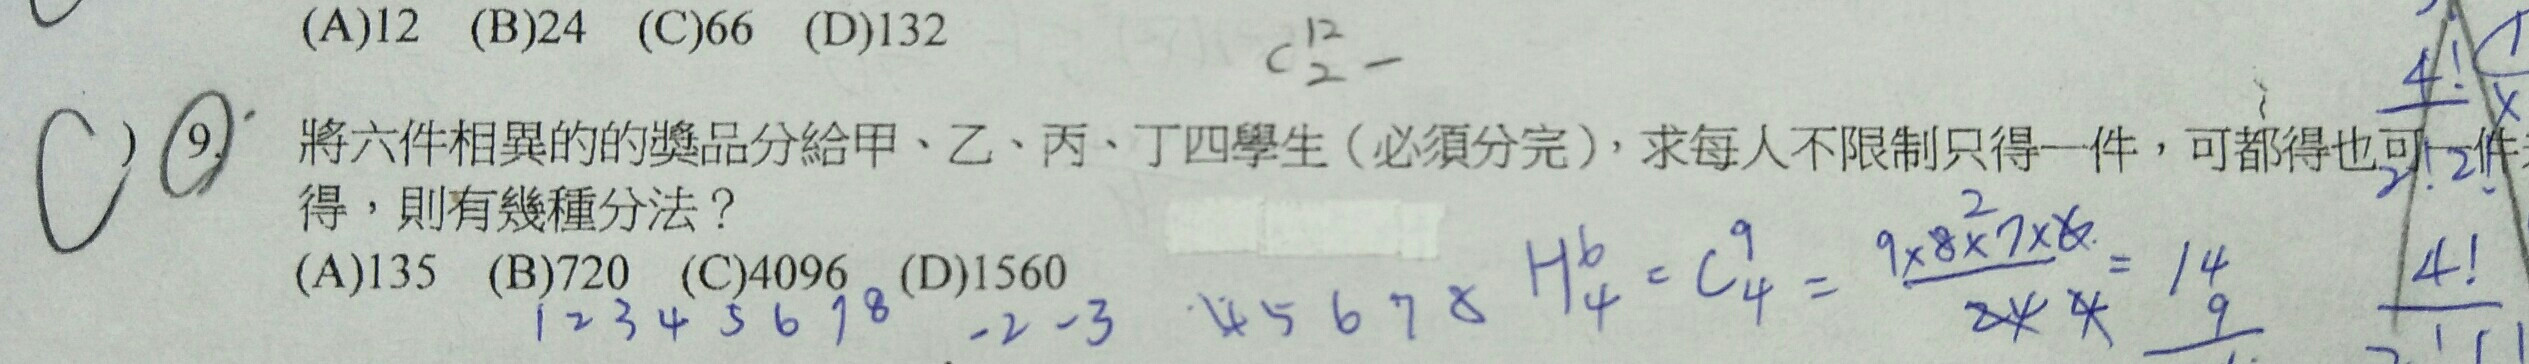 (A)12 (B)24 (C)66 (D)132
C 12 2 −
C ) 9. 將六件相異的的獎品分給甲、乙、丙、丁四學生（必須分完），求每人不限制只得一件，可都得也可一件
得，則有幾種分法？
(A)135 (B)720 (C)4096 (D)1560
1 2 3 4 5 6 7 8 -2 -3 4 5 6 7 8
H 6 4 = C 9 4 = 9×8×7×6 / 24 = 14
2
9
4!
2!2!
4!